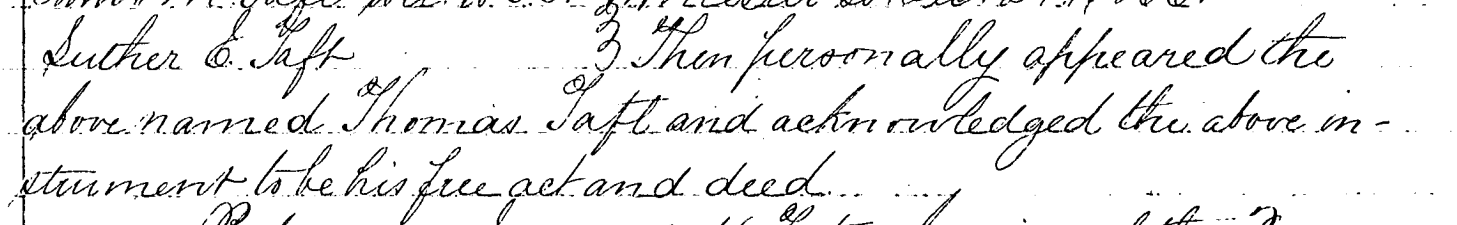 Luther E. Taft } Then personally appeared the
above named Thomas Taft and acknowledged the above in-
strument to be his free act and deed.